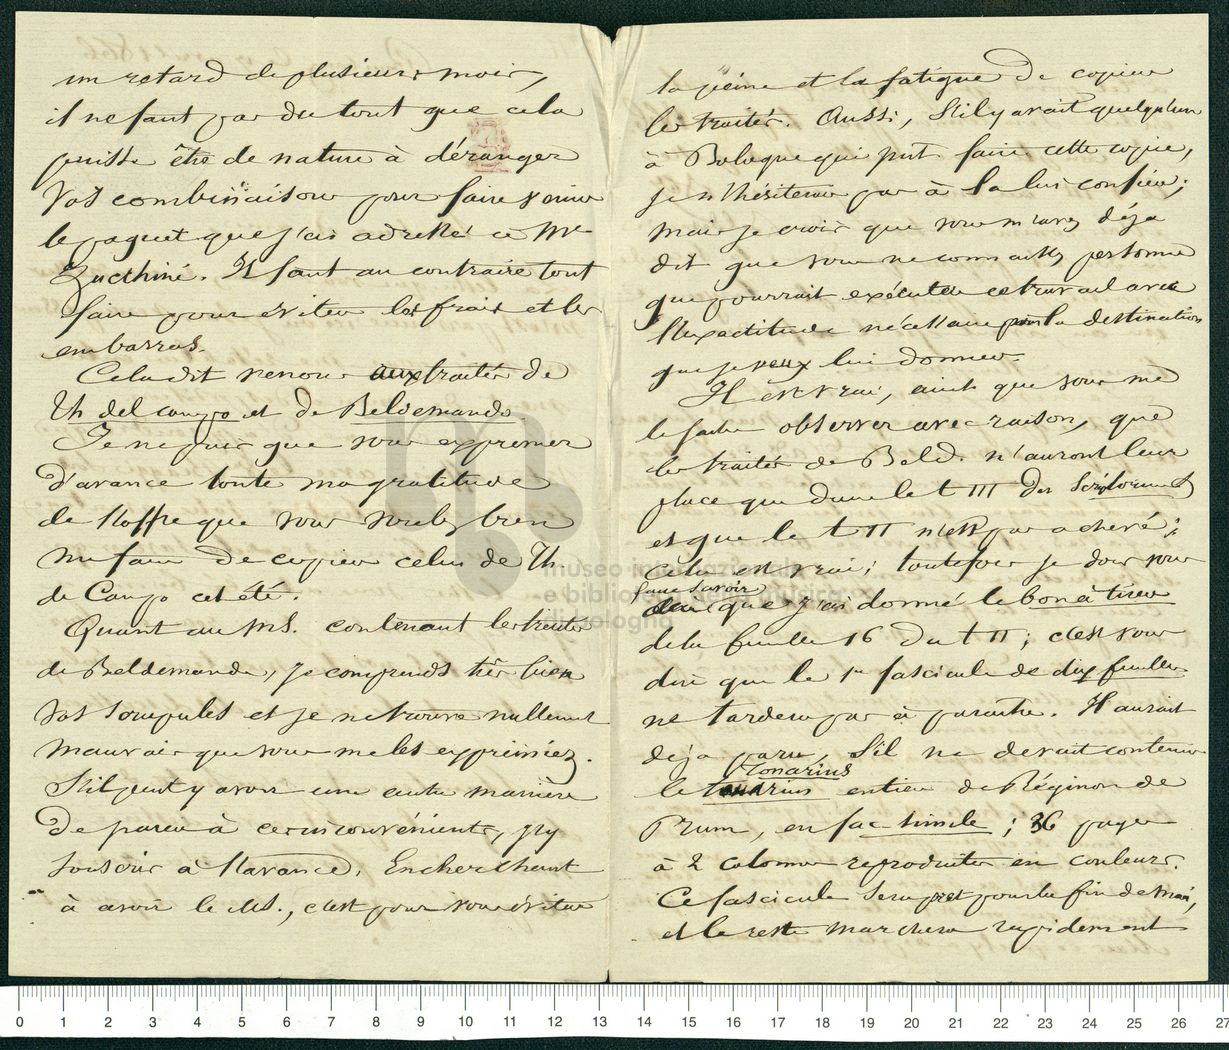 un retard de plusieurs mois,
il ne faut pas du tout que cela
puisse être de nature à déranger
vos combinaisons pour faire venir
le paquet que j'ai adressé à Mr
Zucchini. Il faut au contraire tout
faire pour éviter les frais et les
embarras.
Cela dit venons aux traités de
Th del campo et de Beldemando
Je ne puis que vous exprimer
d'avance toute ma gratitude
de l'offre que vous voulez bien
me faire de copier celui de Th.
de Campo cet été.
Quant au ms. contenant les traités
de Beldemande, je comprends très bien
vos scrupules et je ne trouve nullement
mauvais que vous me les exprimiez.
S'il peut y avoir une autre manière
de parer à ces inconvénients, j'y
souscris à l'avance. En cherchant
à avoir le Ms., c'est pour vous éviter
la peine et la fatigue de copier
les traités. Aussi, s'il y avait quelqu'un
à Bologne qui put faire cette copie,
je n'hésiterais pas à la lui confier;
mais je crois que vous m'avez déja
dit que vous ne connaissez personne
qui pourrait exécuter ce travail avec
l'exactitude nécessaire pour la destination
que je veux lui donner.
Il est vrai, ainsi que vous me
le faites observer avec raison, que
les traités de Beld. n'auront leur
place que dans le t III des Scriptorum
et que le t II n'est pas achevé;
cela est vrai; toutefois je dois vous
faire savoir
que j'ai donné le bon à tirer
de la feuille 16 du t II; c'est vous
dire que le 1er fascicule de dix feuilles
ne tardera pas à paraître. Il aurait
déja paru, s'il ne devait contenir
Tonarius
le entier de Réginon de
Prum, en fac simile; 36 pages
à 2 colonnes reproduites en couleurs.
Ce fascicule sera prêt pour la fin de mai,
et le reste marchera rapidement
museo internazionale
e biblioteca della musica
di bologna
0 1 2 3 4 5 6 7 8 9 10 11 12 13 14 15 16 17 18 19 20 21 22 23 24 25 26 27